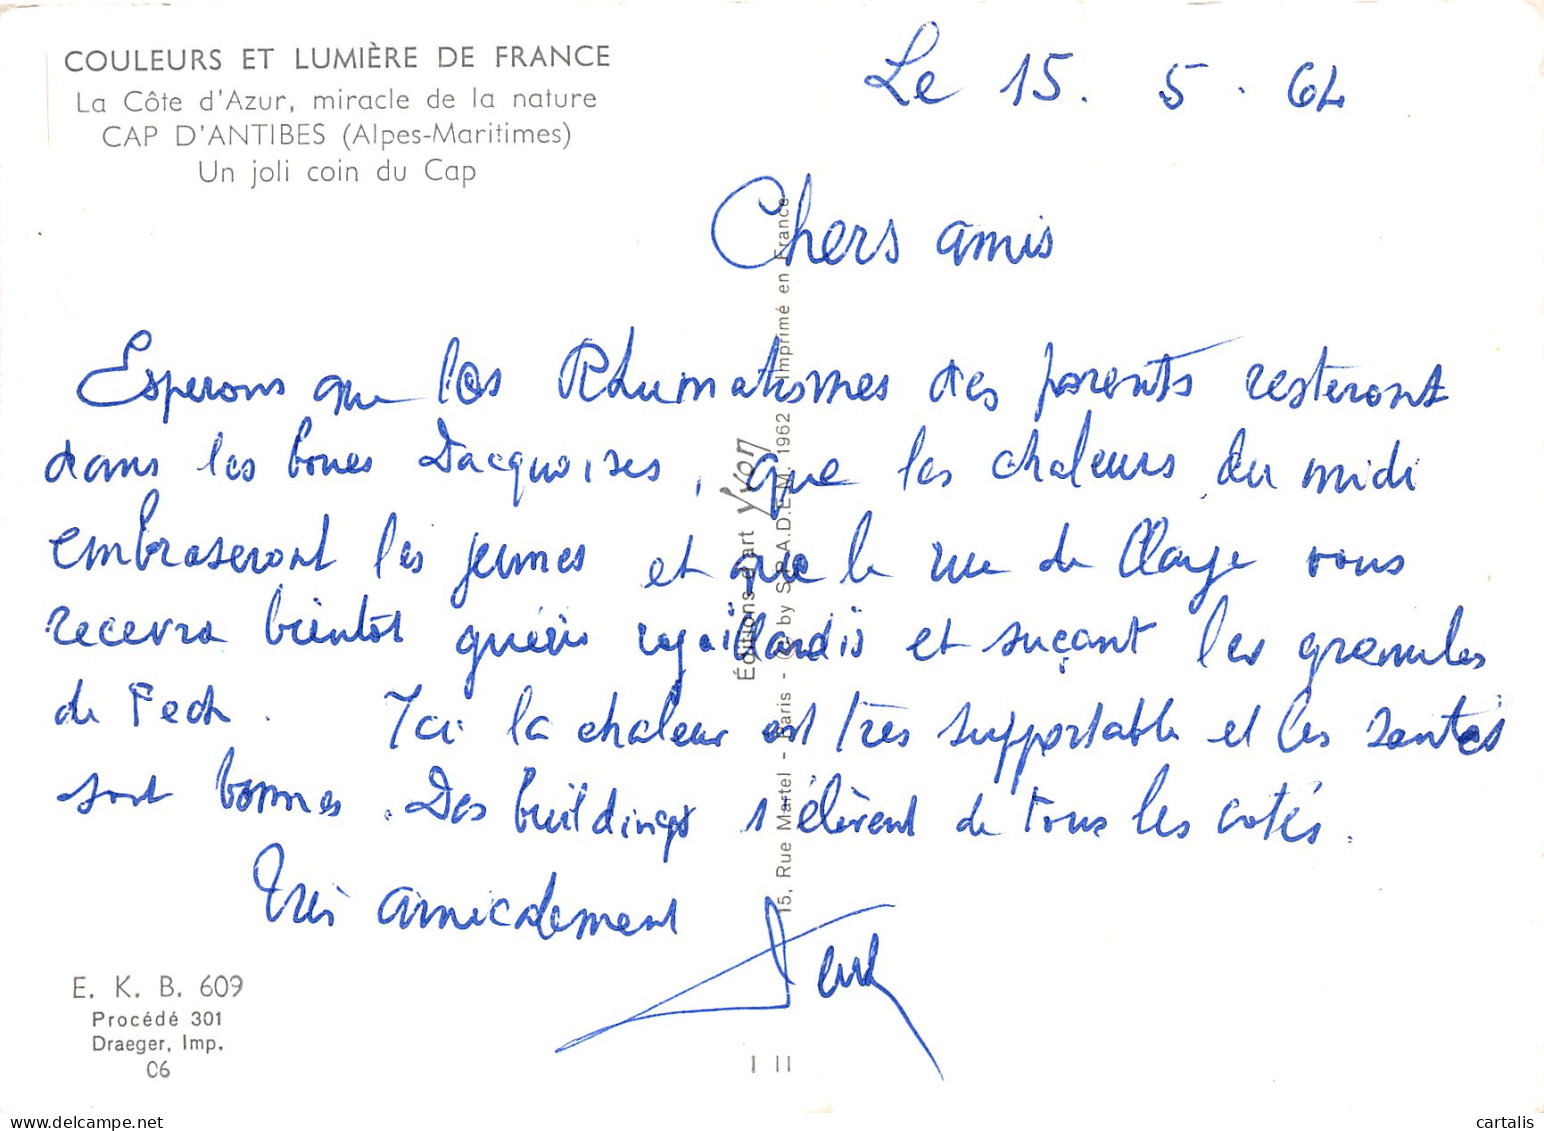 COULEURS ET LUMIÈRE DE FRANCE
La Côte d'Azur, miracle de la nature
CAP D'ANTIBES (Alpes-Maritimes)
Un joli coin du Cap
Le 15. 5. 64
Chers amis
Esperons que les Rhumatismes des parents resteront
dans les boues Dacquoises, que les chaleurs du midi
embraseront les jeunes et que la rue du vous
recevra bientôt guéris regaillardis et suçant les granules
de Fech. Ici la chaleur est très supportable et les santés
sont bonnes. Des buildings s'élèvent de tous les cotés.
Très amicalement
Éditions d'art Yvon
15, Rue Martel - Paris - by S.P.A.D.E.M. 1962 Imprimé en France
E. K. B. 609
Procédé 301
Draeger, Imp.
C6
I II
cartalis